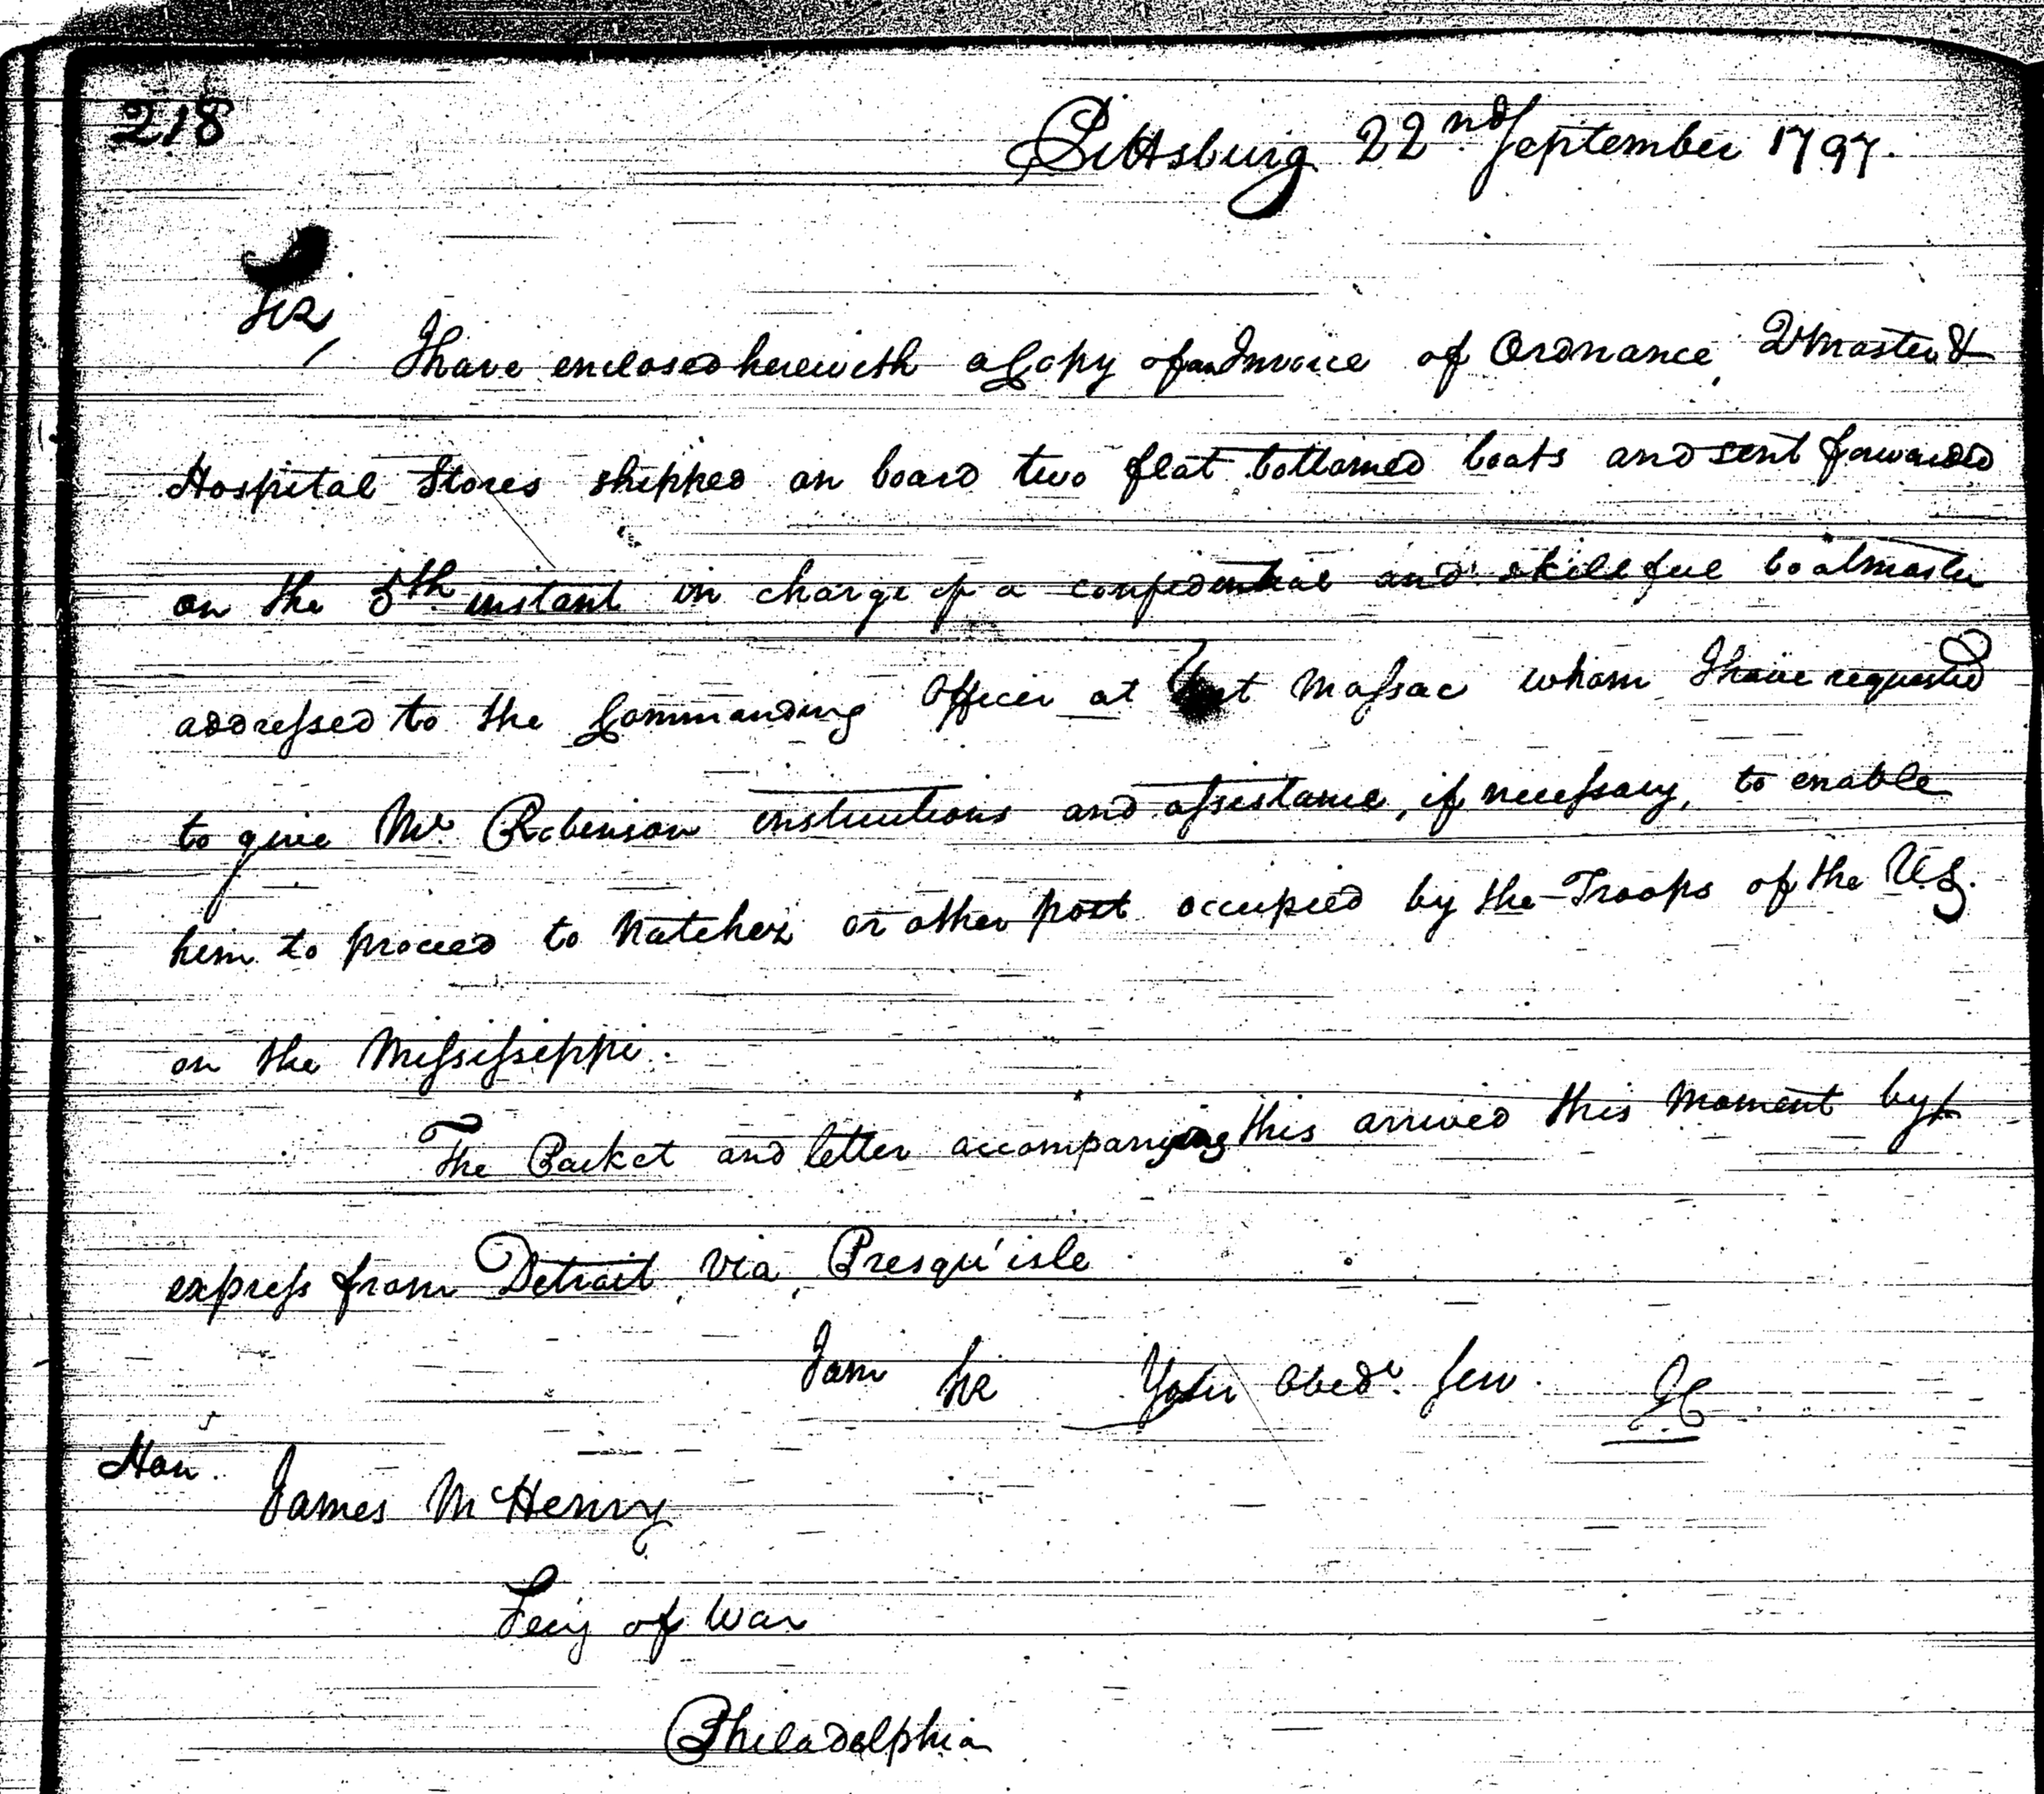 218
Pittsburg 22nd September 1797.
Sir,
I have enclosed herewith a Copy of an Invoice of Ordnance, Qrmaster &
Hospital Stores shipped on board two flat bottomed boats and sent forwarded
on the 5th instant in charge of a confidential and skillful boatmaster
addressed to the Commanding Officer at Fort Massac whom I have requested
to give Mr. Robinson instructions and assistance, if necessary, to enable
him to proceed to Natchez or other post occupied by the Troops of the U.S.
on the Mississippi.
The Packet and letter accompanying this arrived this moment by
express from Detroit via Presqu'isle
I am Sir Your Obedt. Serv. IC
Hon.
James McHenry
Secy of War
Philadelphia